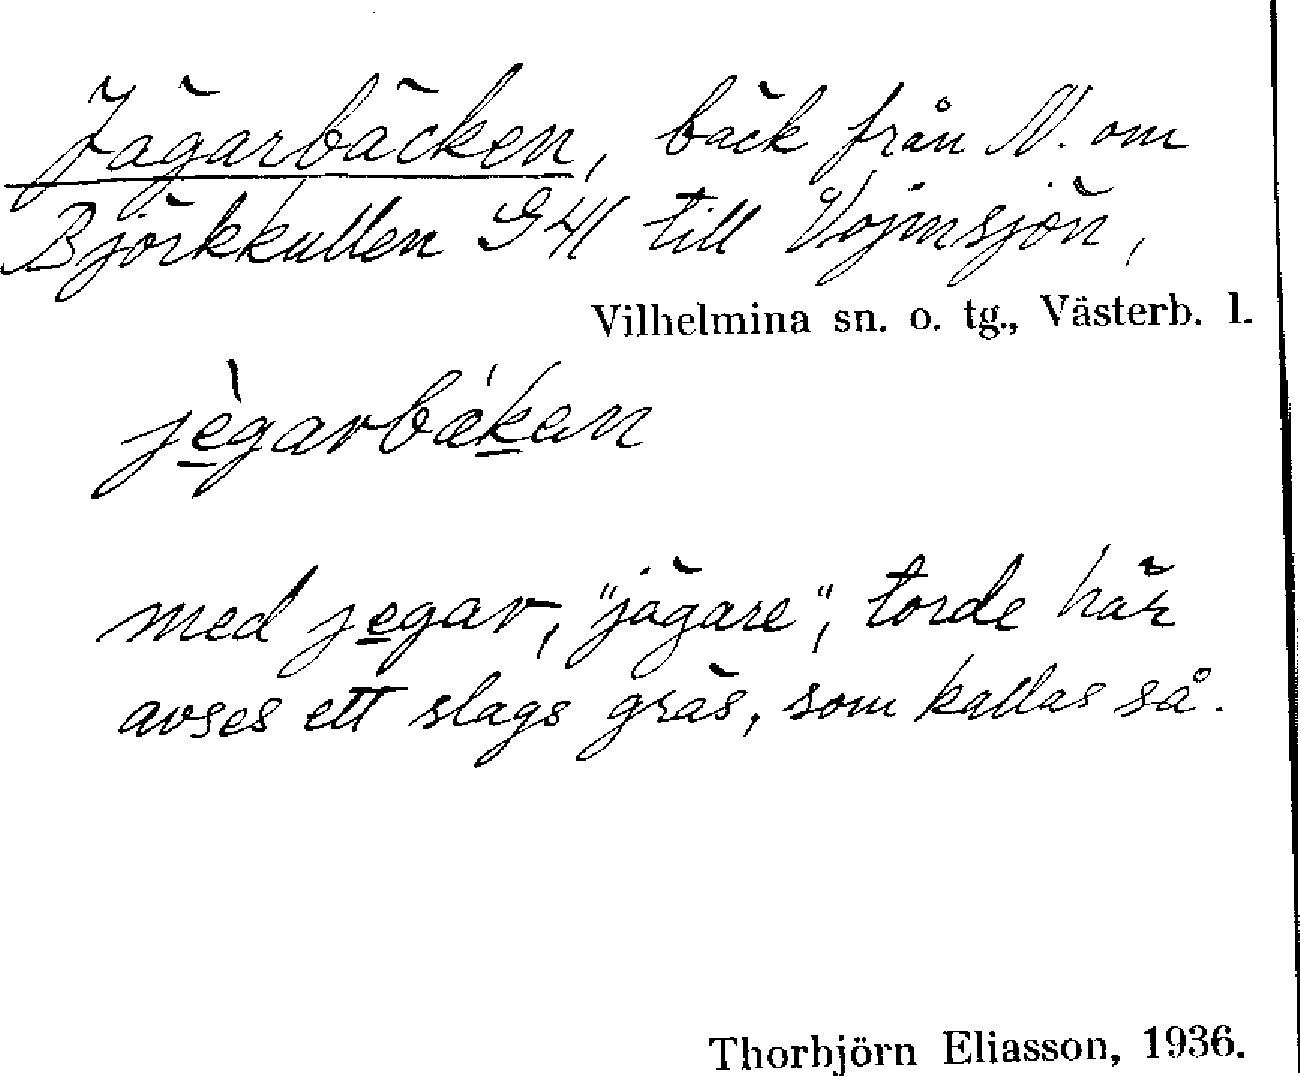 Jägarbäcken, bäck från N. om
Björkkullen G41 till Vojmsjön,
Vilhelmina sn. o. tg., Västerb. l.
jègarbák̲an
med jegar, "jägare", torde här
avses ett slags gräs, som kallas så.
Thorbjörn Eliasson, 1936.